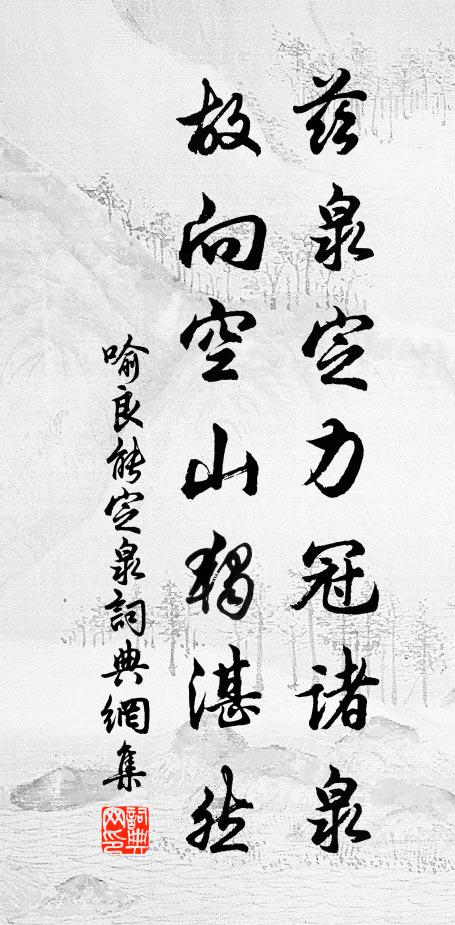 茲泉定力冠諸泉
故向空山獨湛然
喻良能定泉詞典網集
詞典網印